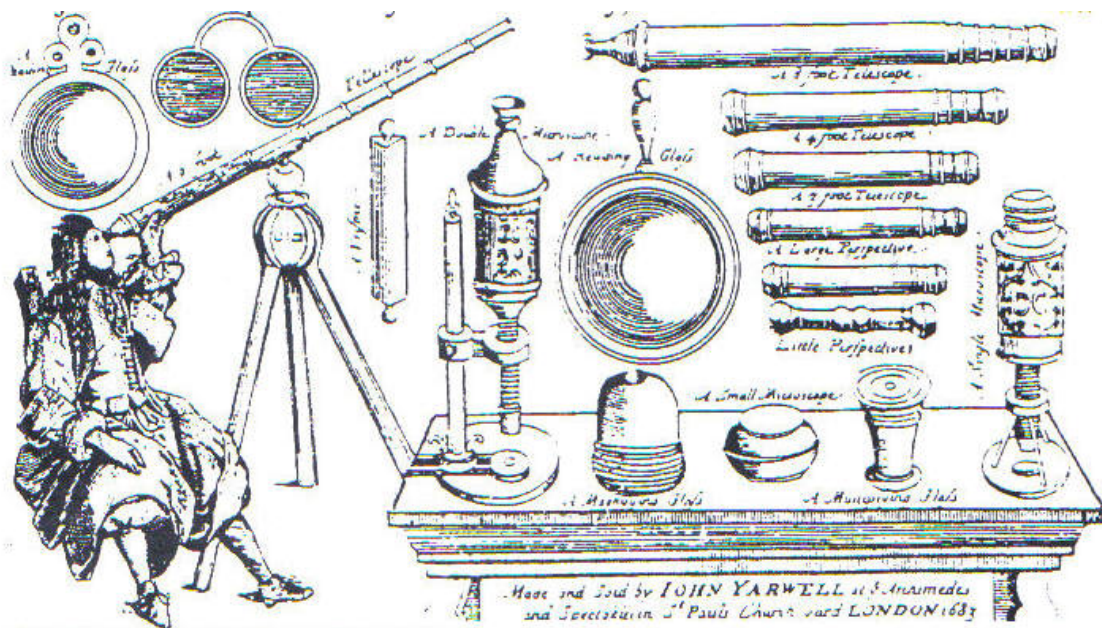 A
Glass
Telescope
A 8 foot Telescope.
A Double Microscope
A Reading Glass
A 4 foot Telescope
A 3 foot Telescope
A Large Perspective.
Little Perspectives
A Prisme
A Single Microscope
A Small Microscope
A Magnifying Glass
A Multiplying Glass
Made and Sold by JOHN YARWELL at ye Archimedes
and Spectacles in St Pauls Church yard LONDON 1683